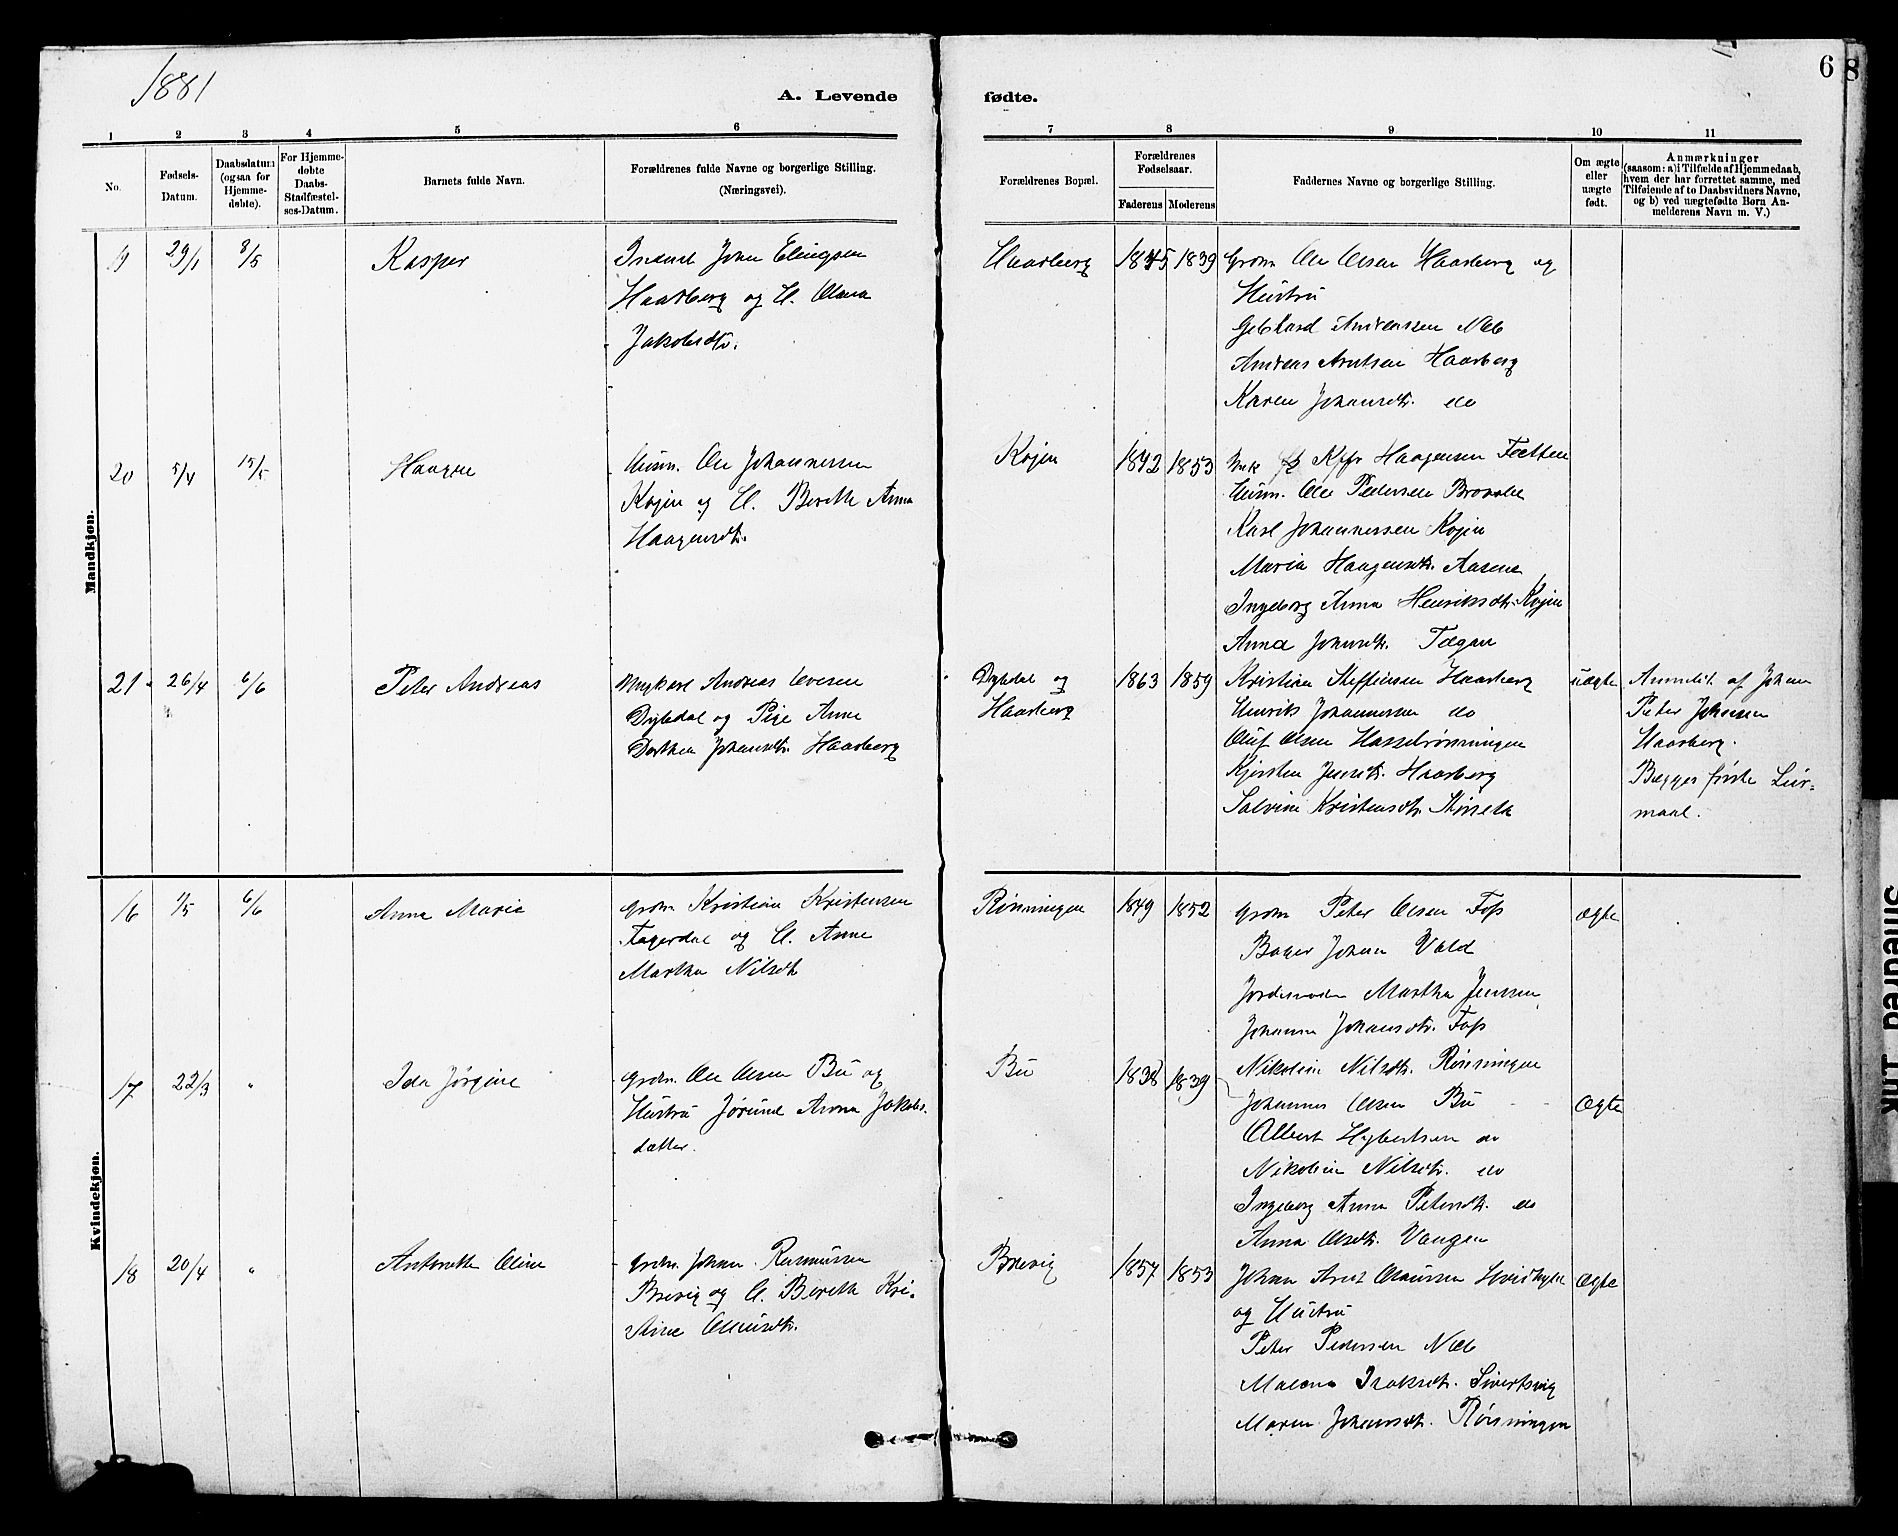 1881
A. Levende fødte.
6
8
1 2 3 4 5 6 7 8 9 10 11
No.
Fødsels-Datum.
Daabsdatum (ogsaa for Hjemme-døbte).
For Hjemme-døbte Daabs-Stadfæstel-ses-Datum.
Barnets fulde Navn.
Forældrenes fulde Navne og borgerlige Stilling. (Næringsvei).
Forældrenes Bopæl.
Forældrenes Fødselsaar.
Faderens Moderens
Faddernes Navne og borgerlige Stilling.
Om ægte eller uægte født.
Anmærkninger
(saasom: a) i Tilfælde af Hjemmedaab,
hvem der har forrettet samme, med
Tilføiende af to Daabsvidners Navne,
og b) ved uægtefødte Børn An-
melderens Navn m. V.)
Mandkjøn.
19 29/1 8/5 Kasper
John Elingsen
Haarberg og H. Olava
Jakobsdtr.
Haarberg 1845 1839
Grdm Ole Olsen Haarberg og
Hustru
Gebhard Andreassen Næb
Andreas Arntsen Haarberg
Karen Johansdtr. do
20 5/4 15/5 Haagen
Husm. Ole Johannessen
Kojen og H. Berethe Anna
Haagensdtr.
Kojen 1842 1853
Haagensen Fætten
Husm. Ole Pedersen
Karl Johannessen Kojen
Maria Haagensdtr. Aasene
Ingeborg Anna Henriksdtr. Kojen
Anna Johnsdtr. Tægan
21 26/4 6/6 Peter Andreas
Ungkarl Andreas
Dybdal og Pige Anne
Dorthea Johansdtr. Haarberg
Dybdal og
Haarberg
1863 1859
Kristian Steffensen Haarberg
Henrik Johannessen do
Oluf Olsen Hasselrønningen
Kjersten Jensdtr. Haarberg
Salvine Kristensdtr.
uægte
Anmeldt af Johan
Peter Johnsen
Haarberg.
Begges første Leir-
maal.
Kvindekjøn.
16 1/5 6/6 Anna Marie
Grdm Kristian Kristensen
Fagerdal og H. Anne
Martha Nilsdtr
Rönningen 1849 1852
Grdm Peter Olsen Foss
Bager Johan Vold
Jordemoder Martha Jenssen
Johanna Johansdtr. Foss
Nikoline Nilsdtr. Rönningen
ægte
17 22/3 " Ida Jørgine
Grdm. Ole Olsen Bu og
Hustru Jørund Anna Jakobs-
datter.
Bu 1838 1839
Johannes Olsen Bu
Albert Hybertsen do
Nikoline Nilsdtr. do
Ingeborg Anna Petersdtr. do
Anna Olsdtr. Vangen
Ægte
18 20/4 " Antonette Oline
Grdm. Johan Rasmussen
Brevig og H. Berethe Kri-
stine Olausdtr.
Brevig 1857 1853
Johan Arnt Olaussen
og Hustru
Peter Pedersen Næb
Malena Isaksdtr. Sivertsvig
Maren Johansdtr. Rönningen
Ægte